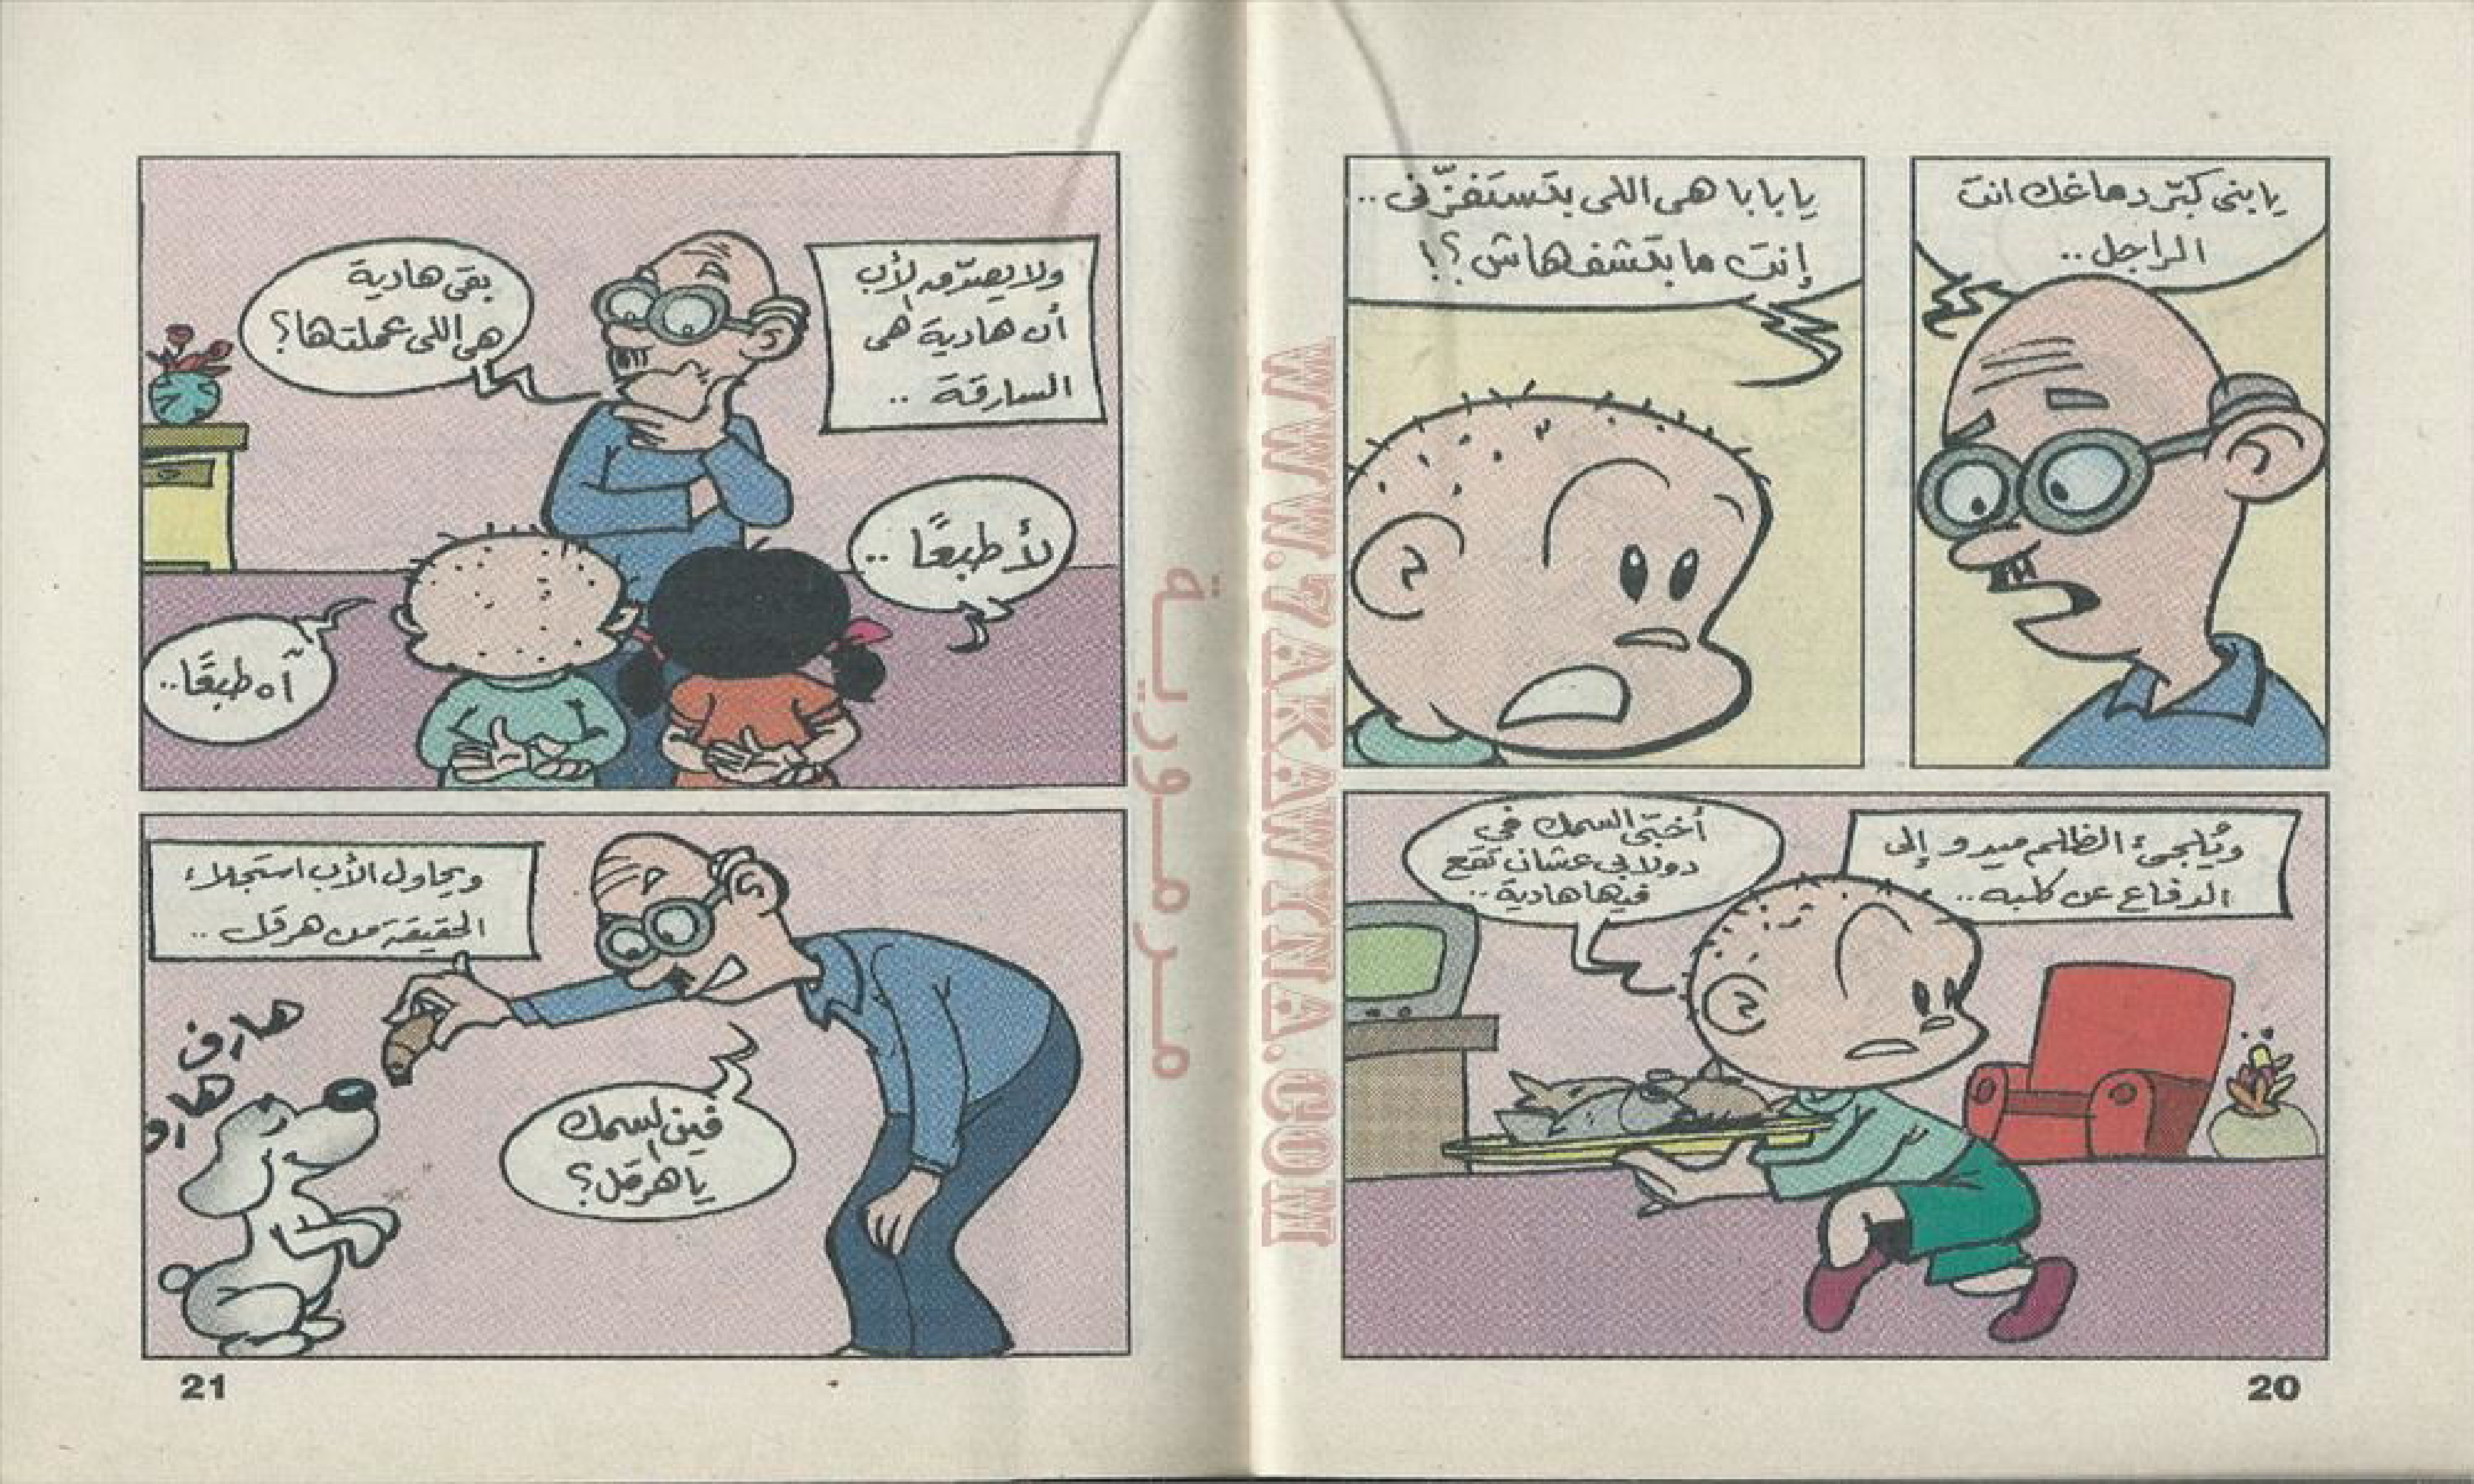 يا بنى كبّر دماغك انت
الراجل..
يا بابا هى اللى بتستفزّنى..
إنت ما بتشفهاش؟!
ويُلجىء الظلم ميدو إلى
الدفاع عن كلبه..
أخبّى السمك في
دولابى عشان تقع
فيها هادية..
20
ولا يصدّق الأب
أن هادية هى
السارقة ..
بقى هادية
هى اللى عملتها؟
لأ طبعًا ..
آه طبعًا..
ويحاول الأب استجلاء
الحقيقة من هرقل ..
فين السمك
يا هرقل؟
هاو
هاو
21
مرمورية
WWW.7AKAWYNA.COM